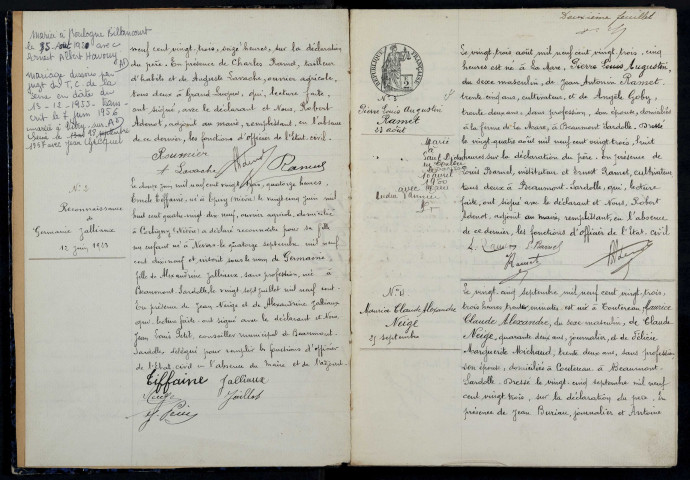 mariée à Boulogne Billancourt
le 25 août 1920 avec
Ernest Albert
mariage dissous par
jugt du T. C. de la
Seine en date du
15-12-1953
crit le 7 juin 1956
mariée à Vitry
Seine le 28 septembre
1957 avec Jean
neuf cent vingt trois, onze heures, sur la déclaration
du père. En présence de Charles Ramet, tailleur
d'habits et de Auguste Lavache, ouvrier agricole,
tous deux à qui, lecture faite,
ont signé avec le déclarant et Nous, Robert
Adenot, adjoint au maire, remplissant, en l'absence
de ce dernier, les fonctions d'officier de l'état civil.
Lavache Ramet
N° 2
Reconnaissance
de
Germaine Jalliaux
12 juin 1923
Le douze juin mil neuf cent vingt trois, quatorze heures,
Emile Tiffaine, né à le vingt cinq juin mil
huit cent quatre vingt dix neuf, ouvrier agricole, domicilié
à (Nièvre) a déclaré reconnaître pour sa fille
un enfant né à Nevers le quatorze septembre mil neuf
cent dix neuf et inscrit sous le nom de Germaine
fille de Alexandrine Jalliaux, sans profession, née à
Beaumont Sardolle, le vingt sept juillet mil neuf cent.
En présence de Jean Neige et de Alexandrine Jalliaux
qui, lecture faite, ont signé avec le déclarant et Nous,
Jean Louis Petit, conseiller municipal de Beaumont-
Sardolle, délégué pour remplir les fonctions d'officier
de l'état civil en l'absence du maire et de l'adjoint.
Tiffaine Jalliaux
Deuxième feuillet
RÉPUBLIQUE FRANÇAISE
N° 3
Pierre Louis Augustin
Ramet
23 août
Marié
à
le
10 avril
1950
avec Marie
Le vingt trois août mil neuf cent vingt trois, cinq
heures est né à La Mure, Pierre Louis Augustin,
du sexe masculin, de Jean Antonin Ramet,
trente cinq ans, cultivateur, et de Angèle Goby,
trente deux ans, sans profession, son épouse, domiciliés
à la ferme de la Mure, à Beaumont Sardolle. Dressé
le vingt quatre août mil neuf cent vingt trois, huit
heures, sur la déclaration du père. En présence de
Louis Barnel, instituteur et Ernest Ramet, cultivateur
tous deux à Beaumont-Sardolle, qui, lecture
faite, ont signé avec le déclarant et Nous, Robert
Adenot, adjoint au maire, remplissant, en l'absence
de ce dernier, les fonctions d'officier de l'état civil.
Ramet
N° 4
Maurice Claude Alexandre
Neige
25 septembre
Le vingt cinq septembre mil neuf cent vingt trois,
trois heures trente minutes, est né à Maurice
Claude Alexandre, du sexe masculin, de Claude
Neige, quarante deux ans, journalier, et de Félicie
Marguerite Michaud, trente deux ans, sans profession
son épouse, domiciliés à à Beaumont-
Sardolle. Dressé le vingt cinq septembre mil neuf
cent vingt trois, sur la déclaration du père. En
présence de Jean Buriau, journalier et Antoine